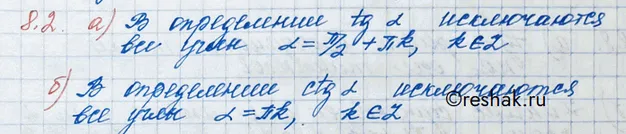 8.2. а) В определении tg α исключаются
все углы α = π/2 + πk, k ∈ Z
б) В определении ctg α исключаются
все углы α = πk, k ∈ Z
©reshak.ru